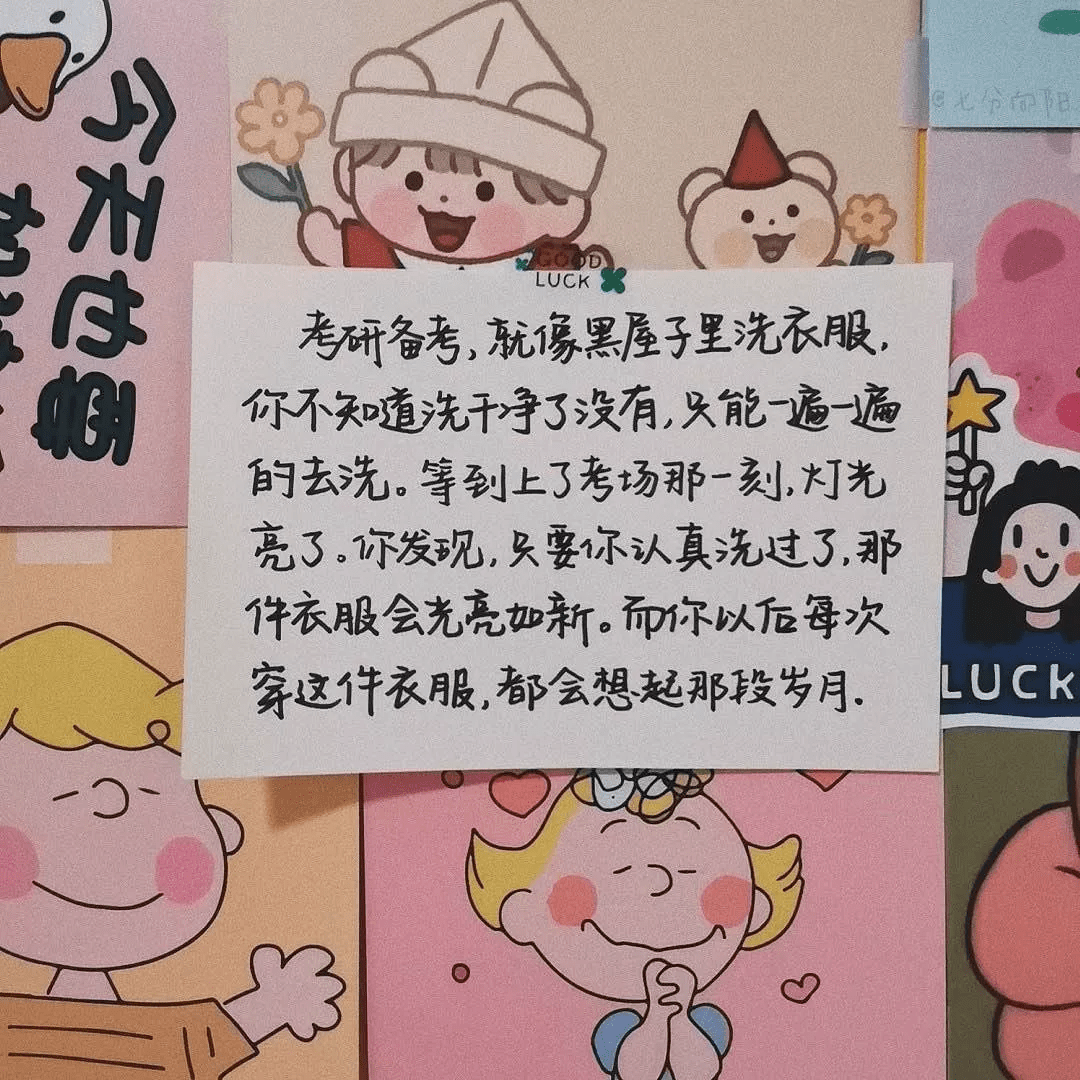 今天也要
GOOD
LUCK
考研备考,就像黑屋子里洗衣服,
你不知道洗干净了没有,只能一遍一遍
的去洗。等到上了考场那一刻,灯光
亮了。你发现,只要你认真洗过了,那
件衣服会光亮如新。而你以后每次
穿这件衣服,都会想起那段岁月.
@七分向阳
LUCK